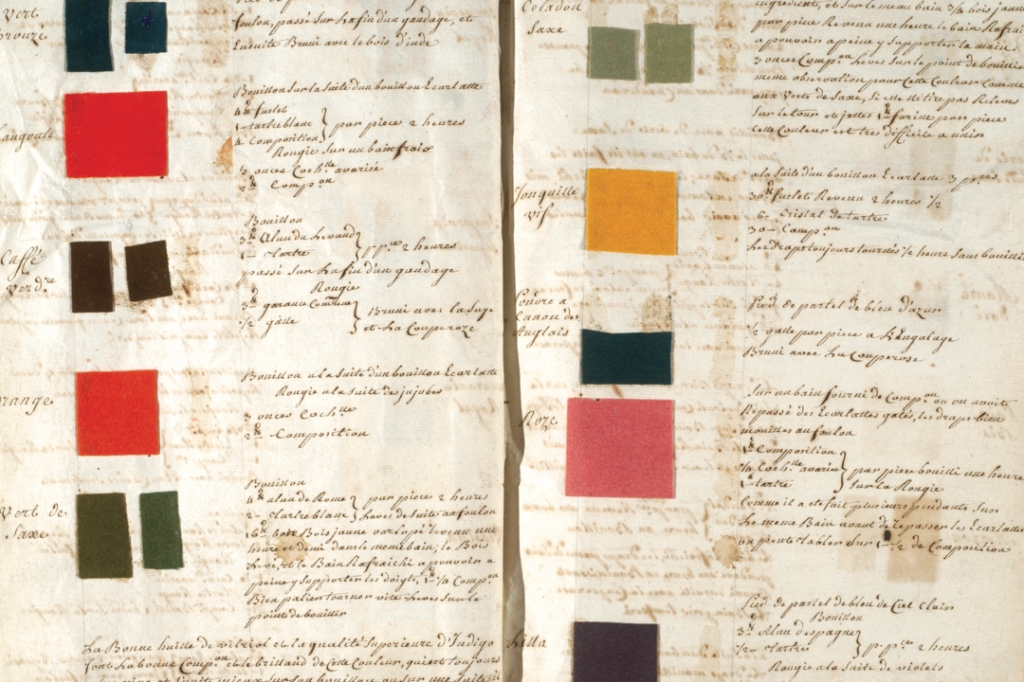 Vert
bronze
foulon, passé Sur La fin d'un gaudage, et
Ensuite Bruni avec le bois d'inde
Langouste
Bouillon Sur La Suite d'un bouillon Ecarlatte
4 fustet
1 tartre blanc
4 Composition
par piece 2 heures
Rougie Sur un bain frais
3 onces Coch.lle avariée
2 Comp.on
Caffé
Verd.re
Bouillon
3 Alun du Levand
1 - Tartre
p. p.ce 2 heures
passé Sur La fin d'un gaudage
Rougie
3 garance Commune
1/2 galle
Bruni avec La Suye
et La Couperoze
orange
Bouillon a la Suite d'un bouillon Ecarlatte
Rougie a la Suite des jujubes
3 onces Coch.lle
2 - Composition
Vert de
Saxe
Bouillon
4 alun de Rome
2 - Tartre blanc
par piece 2 heures
Levés de Suite au foulon
Bois jaune Varlopé Revenu une
heure et demi dans le meme bain, le Bois
Levé, et le Bain Rafraichi a pouvoir a
peine y Supporter les doigts, 1 1/2 Comp.on
Bien palier tourner vite Levés Sur le
point de bouillir
La Bonne huille de vitriol et la qualité Superieure d'Indigo
font La bonne Comp.on et le brilland de Cette Couleur, qui est toujours
Celadon
Saxe
ingredient, et Sur le meme bain 3/4 bois jaune
par piece Revenu une heure le bain Rafraichi
a pouvoir a peine y Supporter la main
3 onces Comp.on Levés Sur le point de bouillir
meme observation pour Cette Couleur Comme
aux Verts de Saxe, Si elle se tire pas Releves
Sur le tour et jettes 1 farine par piece
Cette Couleur est tres difficile a unir
Jonquille
vif
a la Suite d'un bouillon Ecarlatte 3 p.ces
30 fustet Revenu 2 heures 1/2
6 - Cristal de tartre
30 - Comp.on
Les draps toujours tournés 1/2 heure Sans bouillir
Couvre a
Canon des
Anglais
Pied de pastel de bleu d'azur
1/2 galle par piece a L'Engalage
Bruni avec La Couperose
Roze
Sur un bain fourni de Comp.on ou on avoite
Repassé des Ecarlattes gatés, les draps bien
mouillés au foulon
1 Composition
1/4 Coch.lle avariée
1 tartre
par piece bouilli une heure
Sur la Rougie
Comme il a eté fait plusieurs pendants Sur
Le meme Bain avant de repasser les Ecarlattes
on peut tabler Sur 1 1/2 de Composition
Lilla
Pied de pastel de bleu de Ciel Clair
Bouillon
3 Alun d'espagne
1/2 - Tartre
p. p.ce 2 heures
Rougie a la Suite de violets